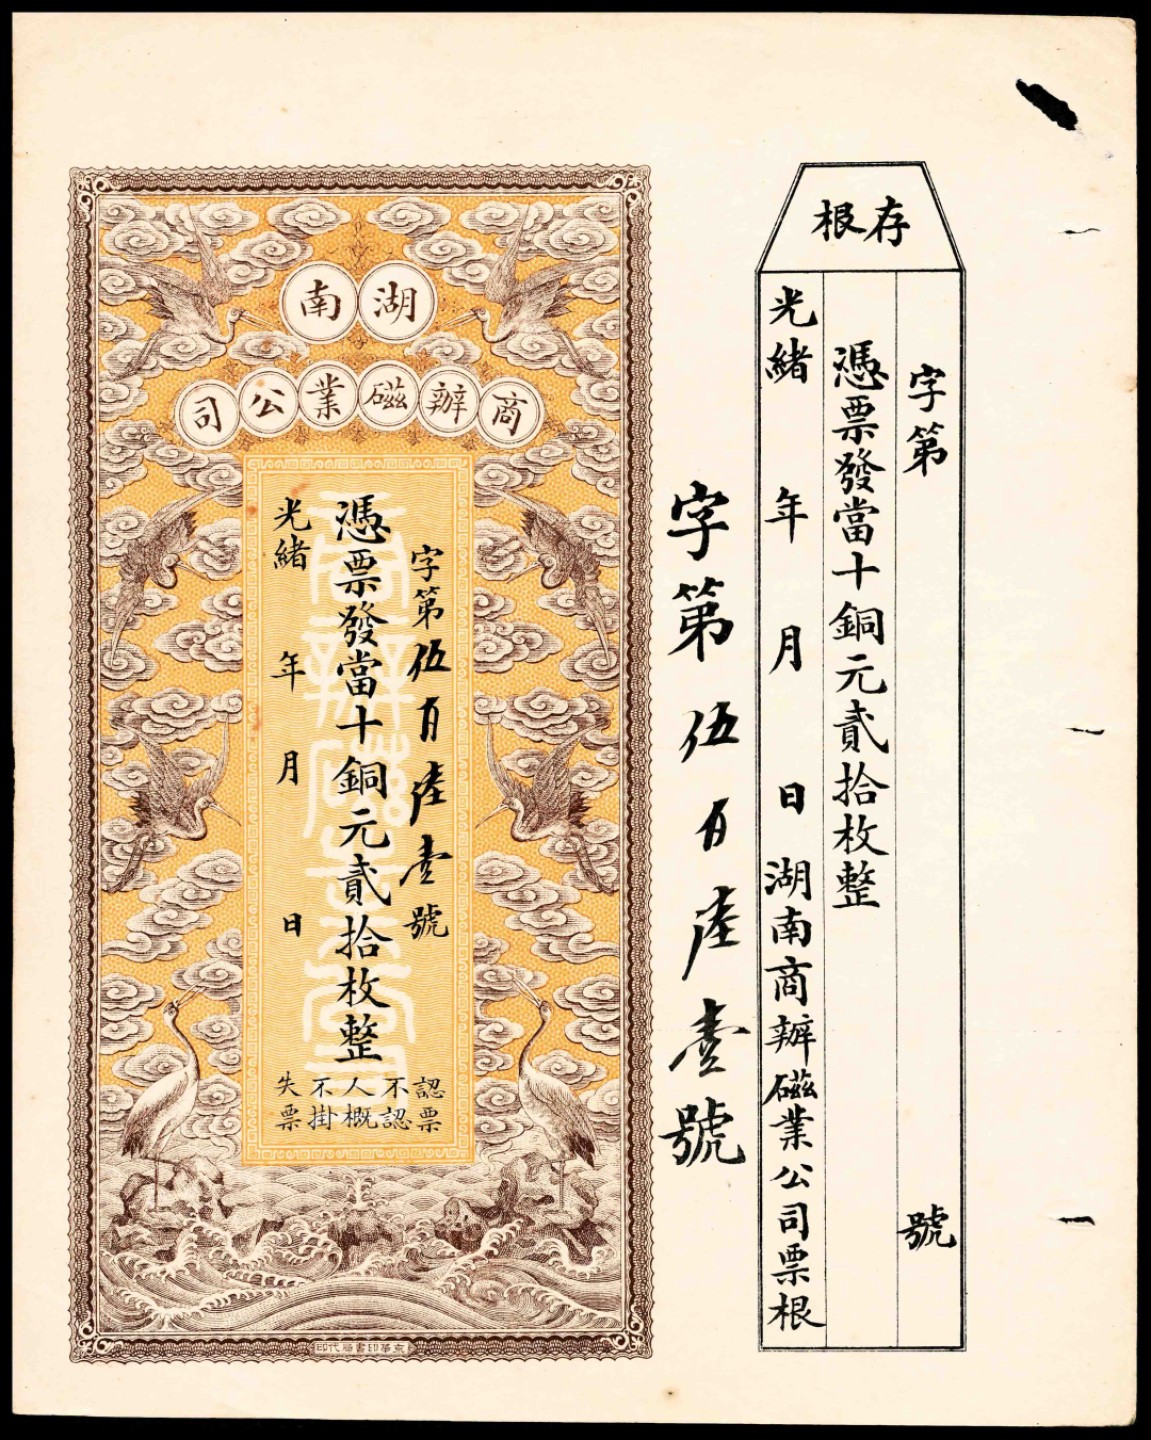 湖南
商辦磁業公司
字第伍百陸壹號
憑票發當十銅元貳拾枚整
光緒 年 月 日
認票
不認
人概
不掛
失票
京華印書局代印
字第伍百陸壹號
存根
字第 號
憑票發當十銅元貳拾枚整
光緒 年 月 日湖南商辦磁業公司票根